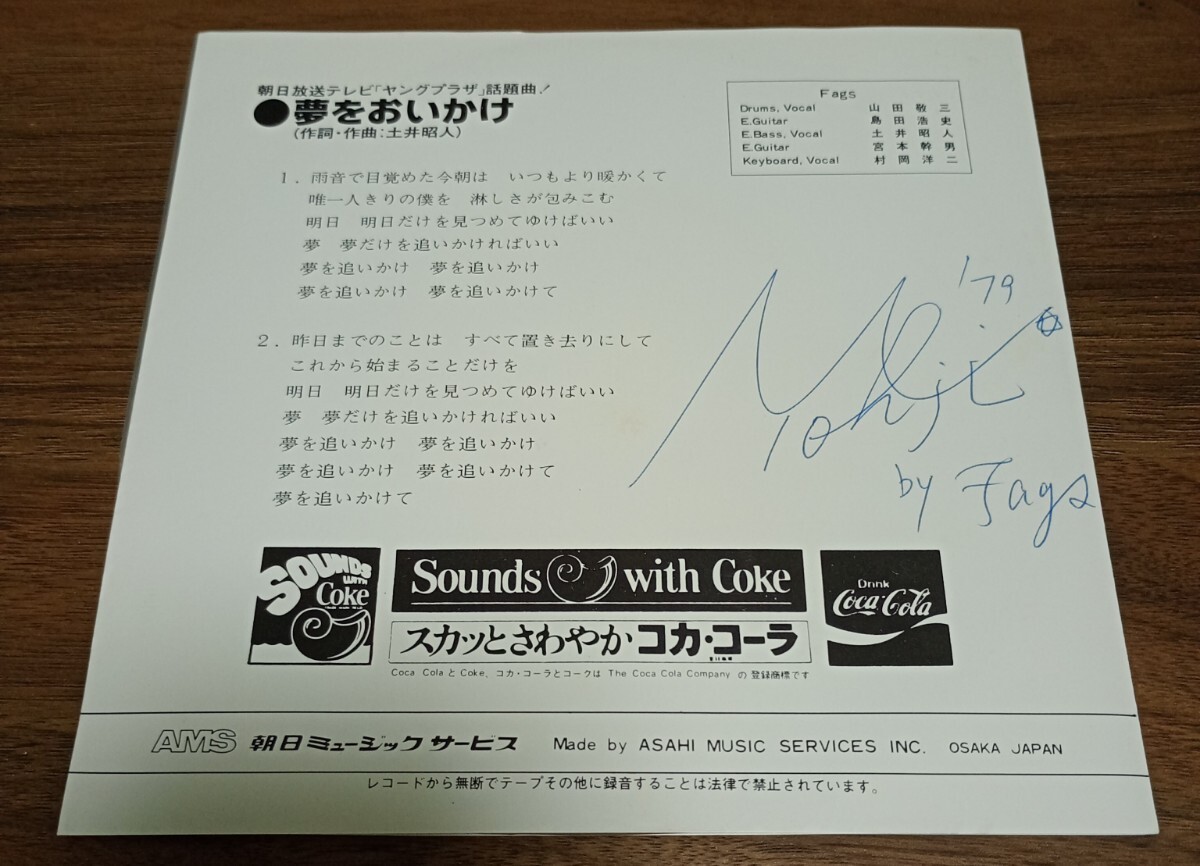 朝日放送テレビ「ヤングプラザ」話題曲!
●夢をおいかけ
(作詞・作曲:土井昭人)
Fags
Drums, Vocal 山田敬三
E.Guitar 島田浩史
E.Bass, Vocal 土井昭人
E.Guitar 宮本幹男
Keyboard, Vocal 村岡洋二
1. 雨音で目覚めた今朝は いつもより暖かくて
唯一人きりの僕を 淋しさが包みこむ
明日 明日だけを見つめてゆけばいい
夢 夢だけを追いかければいい
夢を追いかけ 夢を追いかけ
夢を追いかけ 夢を追いかけて
2. 昨日までのことは すべて置き去りにして
これから始まることだけを
明日 明日だけを見つめてゆけばいい
夢 夢だけを追いかければいい
夢を追いかけ 夢を追いかけ
夢を追いかけ 夢を追いかけて
夢を追いかけて
'79
by Fags
SOUNDS
WITH
Coke
Sounds with Coke
スカッとさわやか コカ・コーラ
Drink
Coca-Cola
Coca ColaとCoke、コカ・コーラとコークは The Coca Cola Company の登録商標です
AMS 朝日ミュージックサービス Made by ASAHI MUSIC SERVICES INC. OSAKA JAPAN
レコードから無断でテープその他に録音することは法律で禁止されています。